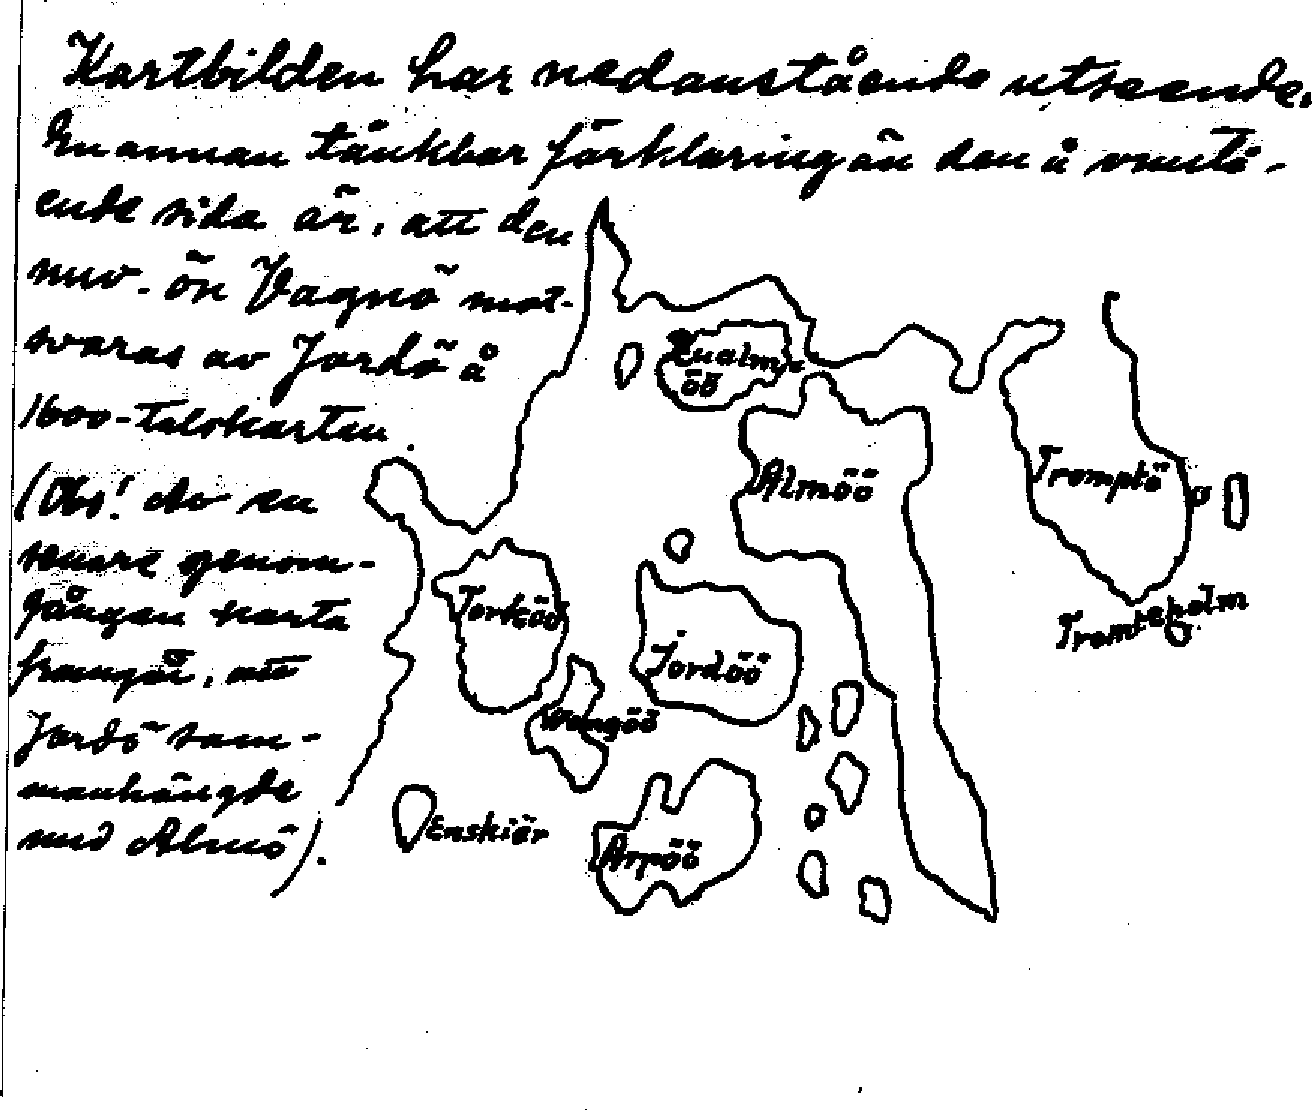 Kartbilden har nedanstående utseende.
En annan tänkbar förklaring än den å omstå-
ende sida är, att den
nuv. ön Vagnö mot-
svaras av Jordö å
1600-talskartan.
(Obs! dock en
senare genom-
gången karta
framgår, att
Jordö sam-
manhängde
med Almö).
Hualm-
öö
Almöö
Tromptö
Tromteholm
Torköö
Jordöö
Wangöö
Enskiär
Arpöö